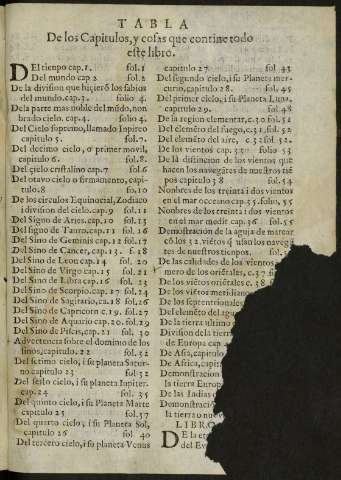 TABLA
De los Capitulos, y cosas que contine todo
este libro.
DEl tiempo cap. 1. fol. 1
Del mundo cap 2 fol. 2
De la division que hizierõ los sabios
del mundo. cap. 3. folio 4.
De la parte mas noble del mũdo, non
brado cielo. cap. 4. folio 4.
Del Cielo sopremo, llamado Inpireo
capitulo 5. fol. 7.
Del decimo cielo, o primer movil,
capitulo 6. fol. 8.
Del cielo cristalino cap. 7 fol. 6
Del otavo cielo o firmamento, capi-
tulo. 8 fo. 10
De los circulos Equinocial, Zodiaco
i division del cielo. cap. 9 fol. 11
Del Signo de Aries. cap. 10 fol. 13
Del signo de Tauro. cap. 11 fol. 16
Del Sino de Geminis cap. 12 fol. 17
Del Sino de Cancer, cap. 13. f. 18
Del Sino de Leon cap. 14 fol. 20
Del Sino de Virgo cap. 15 fol. 21
Del Sino de Libra cap. 16 fol. 23
Del Sino de Scorpio. cap. 17 fol. 24
Del Sino de Sagitario. ca 18 fol. 26
Del Sino de Capricorn c. 19. fol. 27
Del Sino de Aquario cap. 20. fol. 29
Del Sino de Piscis, cap. 21 fol. 30
Advertencia sobre el dominio de los
sinos, capitulo. 22 fol. 32
Del setimo cielo, i su planeta Satur-
no capitulo 23 fol. 32
Del sesto cielo, i su planeta Iupiter.
cap. 24 fol. 35
Del quinto cielo, i su Planeta Marte
capitulo 25 fol. 37
Del quarto cielo, i su Planeta Sol,
capitulo 26 fol 40
Del tercero cielo, i su planeta Venus
capitulo 27 fol 43
Del segundo cielo, i su Planeta mer-
curio, capitulo 28. fol. 45
Del primer cielo, i su Planeta Luna,
capitulo 29. fol. 48
De la region elementar, c. 30 fol. 52
Del elemẽto del fuego, c. 31. fol. 52
Del elemẽto del aire, c. 32 fol. 52.
De los vientos cap. 33 folio 53
De la distincion de los vientos que
hacen los navegãtes de nuestros tiẽ
pos capitulo 38 fol. 54
Nonbres de los treinta i dos vientos
en el mar occeano cap. 35. folio, 55
Nonbres de los treinta i dos vientos
en el mar medit cap. 36 fol. 55
Demostracion de la aguja de marear
cõ los 32. viẽtos q̃ usan los navegã
tes de nuestros tiempos. fol.
De las calidades de los vientos
mero de los oriẽtales, c. 37 f.
De los viẽtos orientales c. 38
De los viẽtos meri
De los septentrional
Del elemẽto del agu
De la tierra ultimo
De la tierra Division
de Europa cap
De Asia, capitulo
De Africa, capit
Demonstracion
la tierra Europ
De las Indias
Demostracion
la tierra o nuev
LIBRO
DE la
del Ev